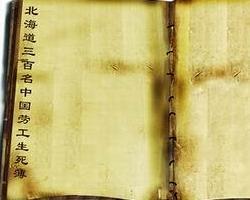 北海道三百名中国劳工生死簿